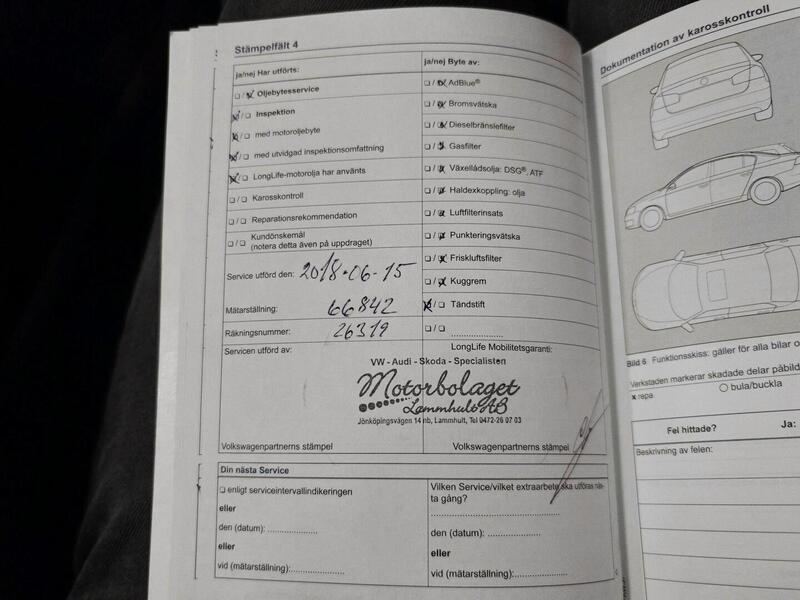 Stämpelfält 4
ja/nej Har utförts:
☐ / ☒ Oljebytesservice
☒ / ☐ Inspektion
☒ / ☐ med motoroljebyte
☒ / ☐ med utvidgad inspektionsomfattning
☒ / ☐ LongLife-motorolja har använts
☐ / ☐ Karosskontroll
☐ / ☐ Reparationsrekommendation
☐ / ☐ Kundönskemål
(notera detta även på uppdraget)
Service utförd den: 2018-06-15
Mätarställning: 66842
Räkningsnummer: 26319
ja/nej Byte av:
☐ / ☒ AdBlue®
☐ / ☒ Bromsvätska
☐ / ☒ Dieselbränslefilter
☐ / ☒ Gasfilter
☐ / ☒ Växellådsolja: DSG®, ATF
☐ / ☒ Haldexkoppling: olja
☐ / ☒ Luftfilterinsats
☐ / ☒ Punkteringsvätska
☐ / ☒ Friskluftsfilter
☐ / ☒ Kuggrem
☒ / ☐ Tändstift
☐ / ☐ ....................
Servicen utförd av:
LongLife Mobilitetsgaranti:
VW - Audi - Skoda - Specialisten
Motorbolaget
Lammhult AB
Jönköpingsvägen 14 nb, Lammhult, Tel 0472-26 07 03
Volkswagenpartnerns stämpel
Volkswagenpartnerns stämpel
Din nästa Service
☐ enligt serviceintervallindikeringen
eller
den (datum): ..................
eller
vid (mätarställning):....................
Vilken Service/vilket extraarbete ska utföras näs-
ta gång?
den (datum): ....................
eller
vid (mätarställning):....................
Dokumentation av karosskontroll
Bild 6 Funktionsskiss: gäller för alla bilar
Verkstaden markerar skadade delar
x repa
○ bula/buckla
Fel hittade?
Ja:
Beskrivning av felen: